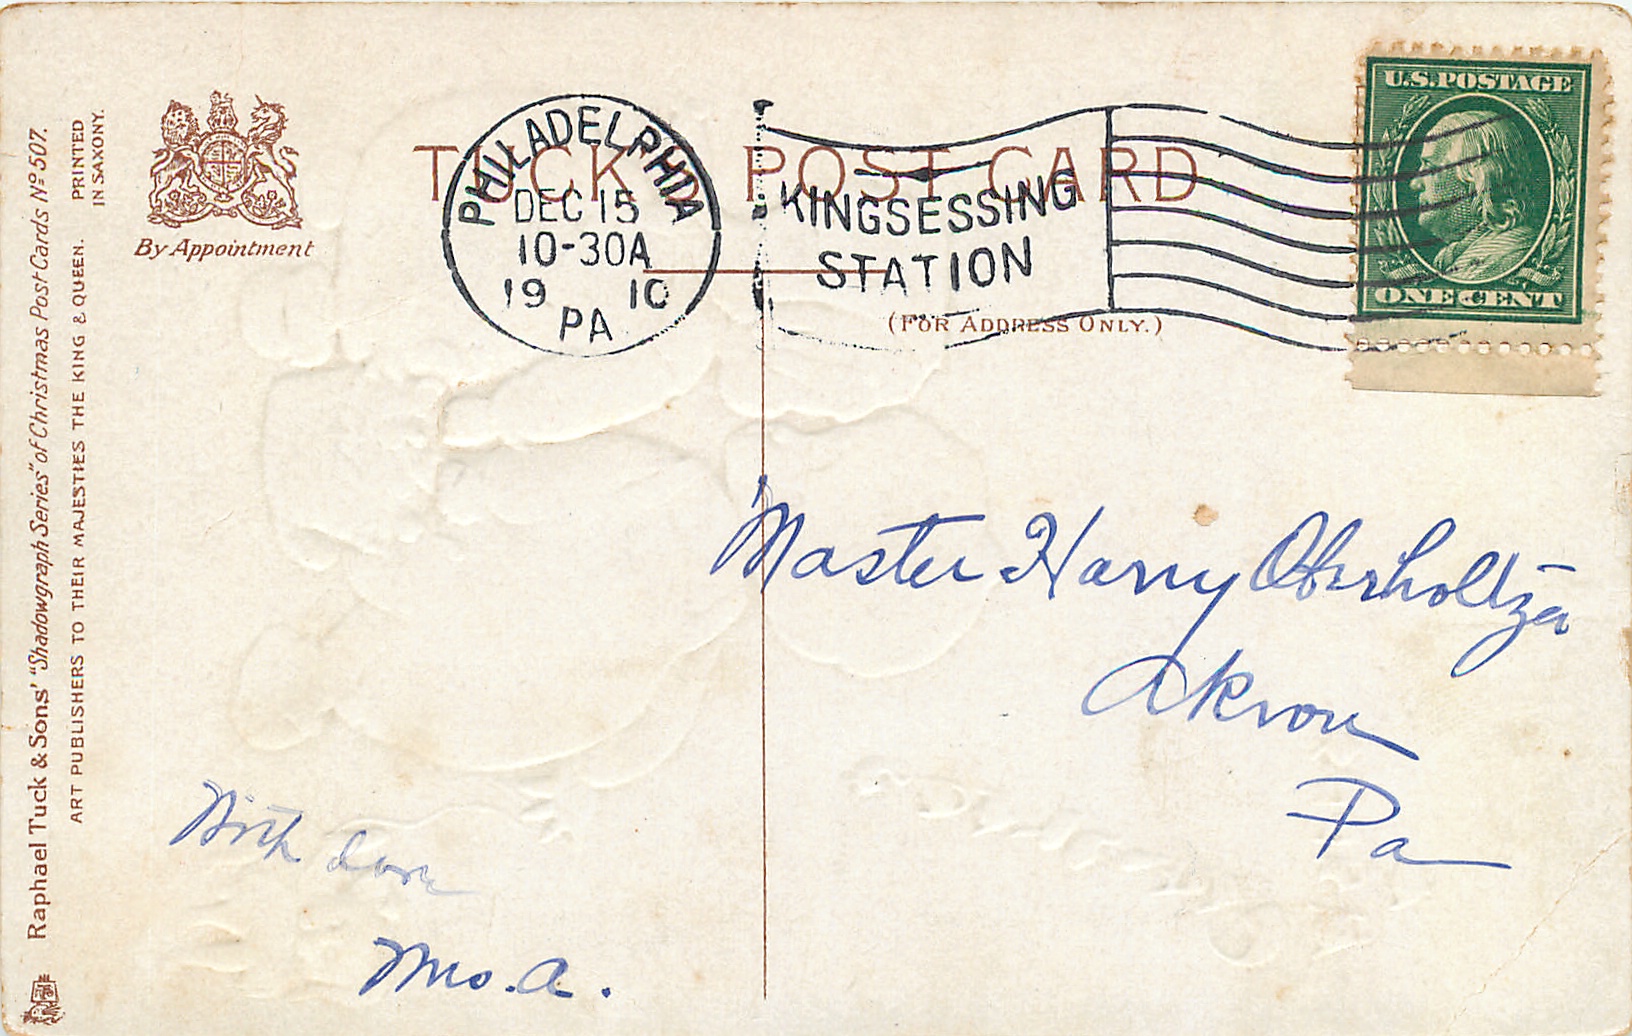 Raphael Tuck & Sons' "Shadowgraph Series" of Christmas Post Cards Nº 507.
ART PUBLISHERS TO THEIR MAJESTIES THE KING & QUEEN.
PRINTED
IN SAXONY.
By Appointment
TUCK'S POST CARD
(FOR ADDRESS ONLY.)
PHILADELPHIA
DEC 15
10-30A
1910
PA
KINGSESSING
STATION
U.S. POSTAGE
ONE CENT
Master Harry Oberholtzer
Akron
Pa
With love
Mrs. A.